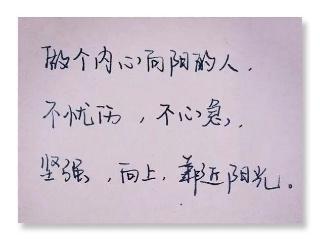 做个内心向阳的人.
不忧伤，不心急,
坚强，向上，靠近阳光。